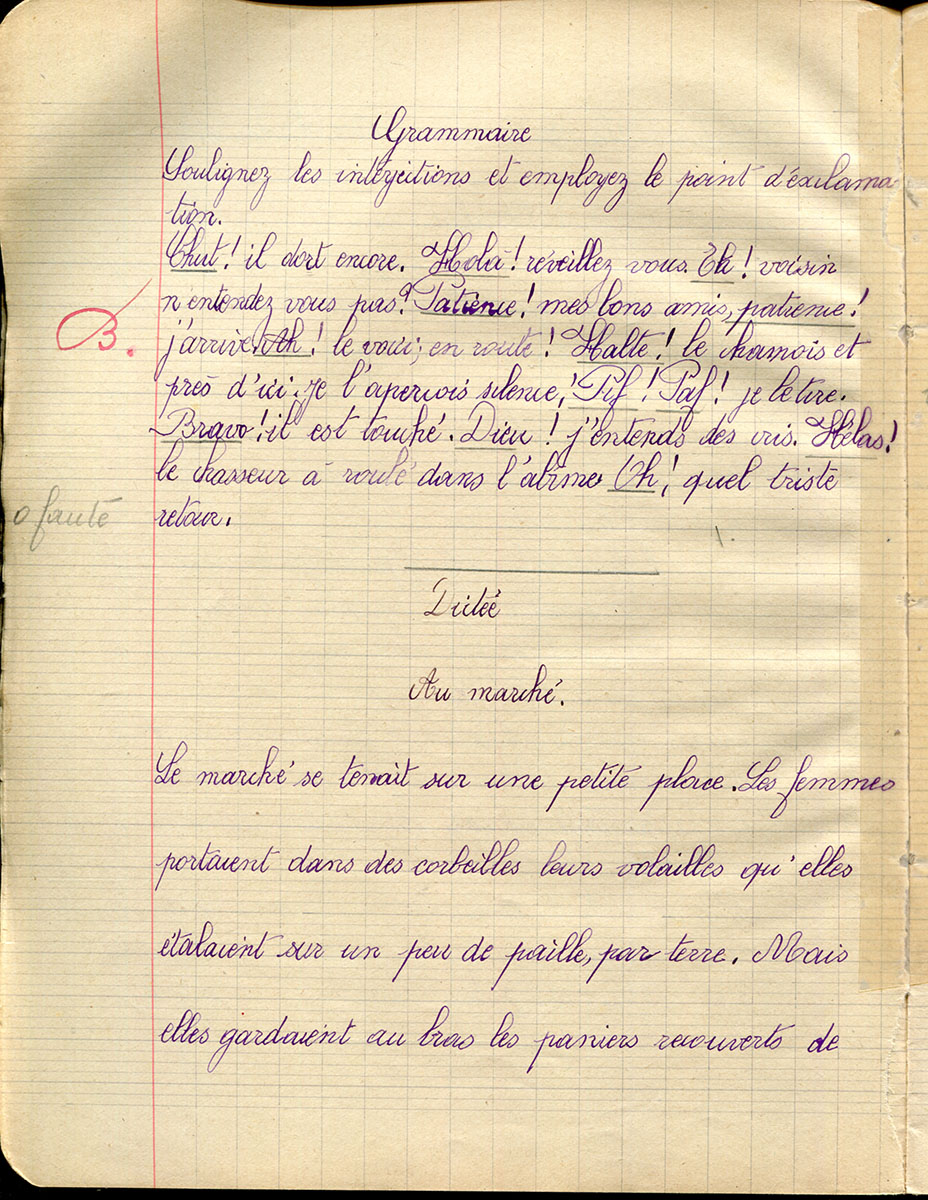 Grammaire
Soulignez les interjections et employez le point d'exclama
tion.
Chut! il dort encore. Hola! réveillez vous. Eh! voisin
n'entendez vous pas? Patience! mes bons amis, patience!
B. j'arrive. Ah! le voici, en route! Halte! le chamois et
près d'ici. Je l'apercois silence! Pif! Paf! je le tire.
Bravo! il est touché. Dieu! j'entends des cris. Hélas!
le chasseur à roulé dans l'abîme Oh! quel triste
0 faute retour.
Dictée
Au marché.
Le marché se tenait sur une petite place. Les femmes
portaient dans des corbeilles leurs volailles qu'elles
étalaient sur un peu de paille, par terre. Mais
elles gardaient au bras les paniers recouverts de